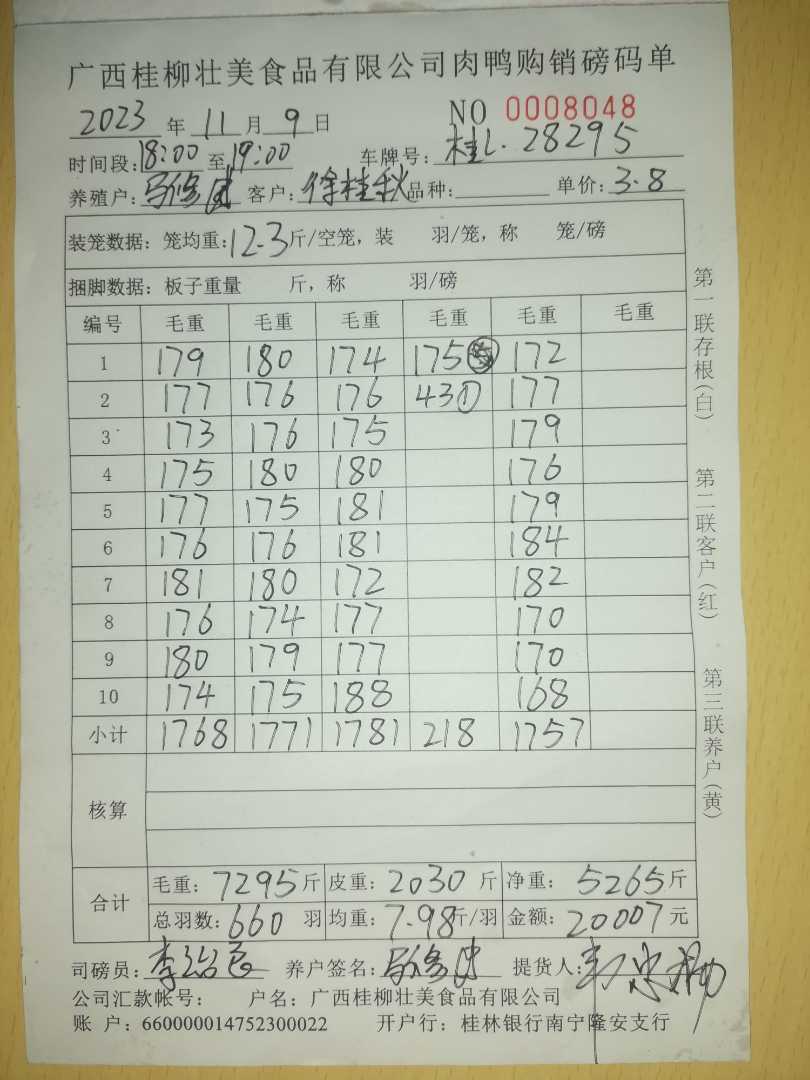 广西桂柳壮美食品有限公司肉鸭购销磅码单
2023 年 11 月 9 日 NO 0008048
时间段: 18:00 至 19:00 车牌号: 桂L·28295
养殖户: 客户: 徐桂秋 品种: 单价: 3.8
装笼数据: 笼均重: 12.3 斤/空笼, 装 羽/笼, 称 笼/磅
捆脚数据: 板子重量 斤, 称 羽/磅
编号 毛重 毛重 毛重 毛重 毛重 毛重
1 179 180 174 175 172
2 177 176 176 43① 177
3 173 176 175 179
4 175 180 180 176
5 177 175 181 179
6 176 176 181 184
7 181 180 172 182
8 176 174 177 170
9 180 179 177 170
10 174 175 188 168
小计 1768 1771 1781 218 1757
核算
合计 毛重: 7295 斤 皮重: 2030 斤 净重: 5265 斤
总羽数: 660 羽 均重: 7.98 斤/羽 金额: 20007 元
司磅员: 养户签名: 提货人:
公司汇款帐号: 户名: 广西桂柳壮美食品有限公司
账 户: 660000014752300022 开户行: 桂林银行南宁隆安支行
第一联存根(白) 第二联客户(红) 第三联养户(黄)